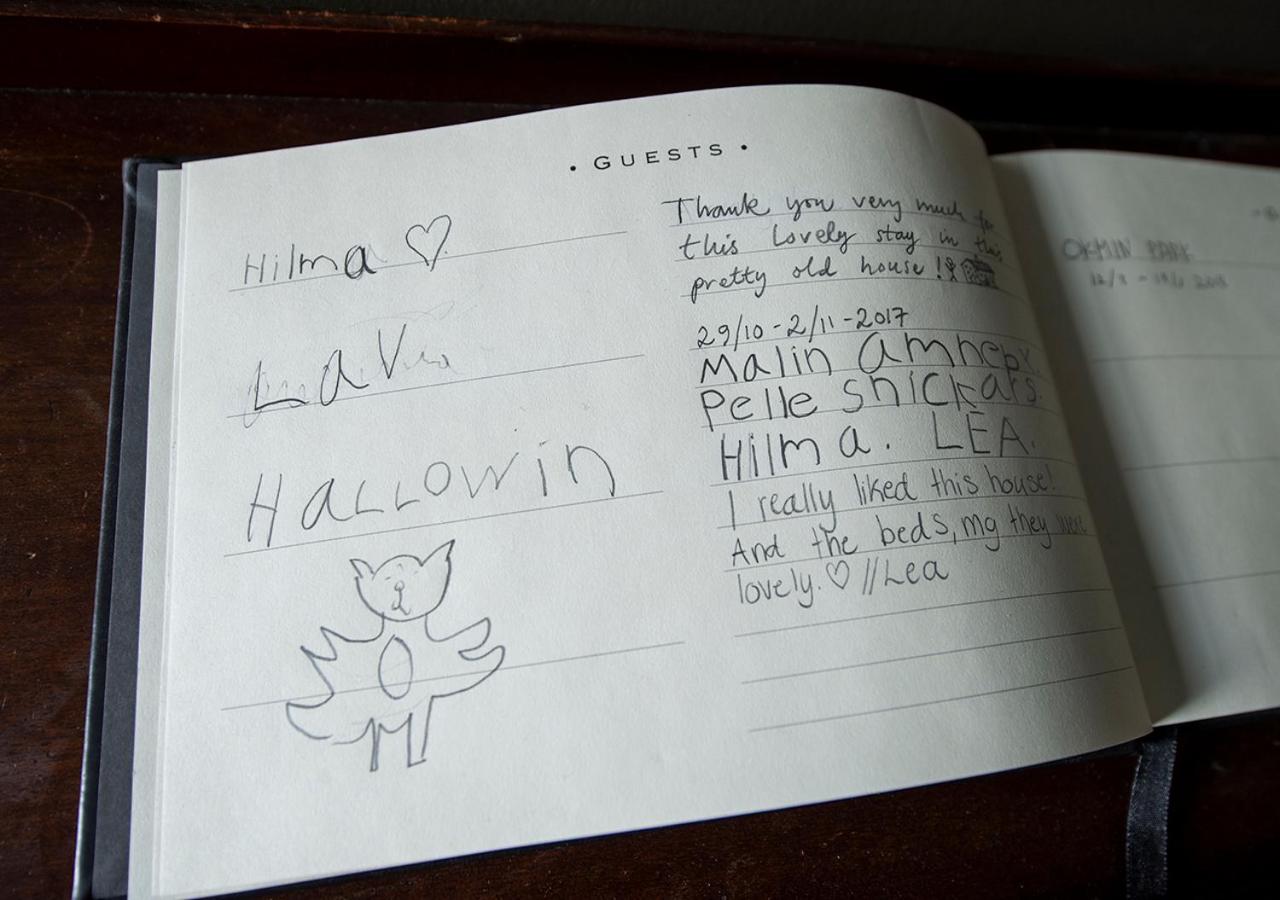 • GUESTS •
Hilma ♡
Hallowin
Thank you very much for
this lovely stay in this
pretty old house!
29/10 - 2/11 - 2017
Malin
Pelle Snickars.
Hilma. LEA.
I really liked this house!
And the beds, mg they were
lovely. ♡ //Lea
PARK